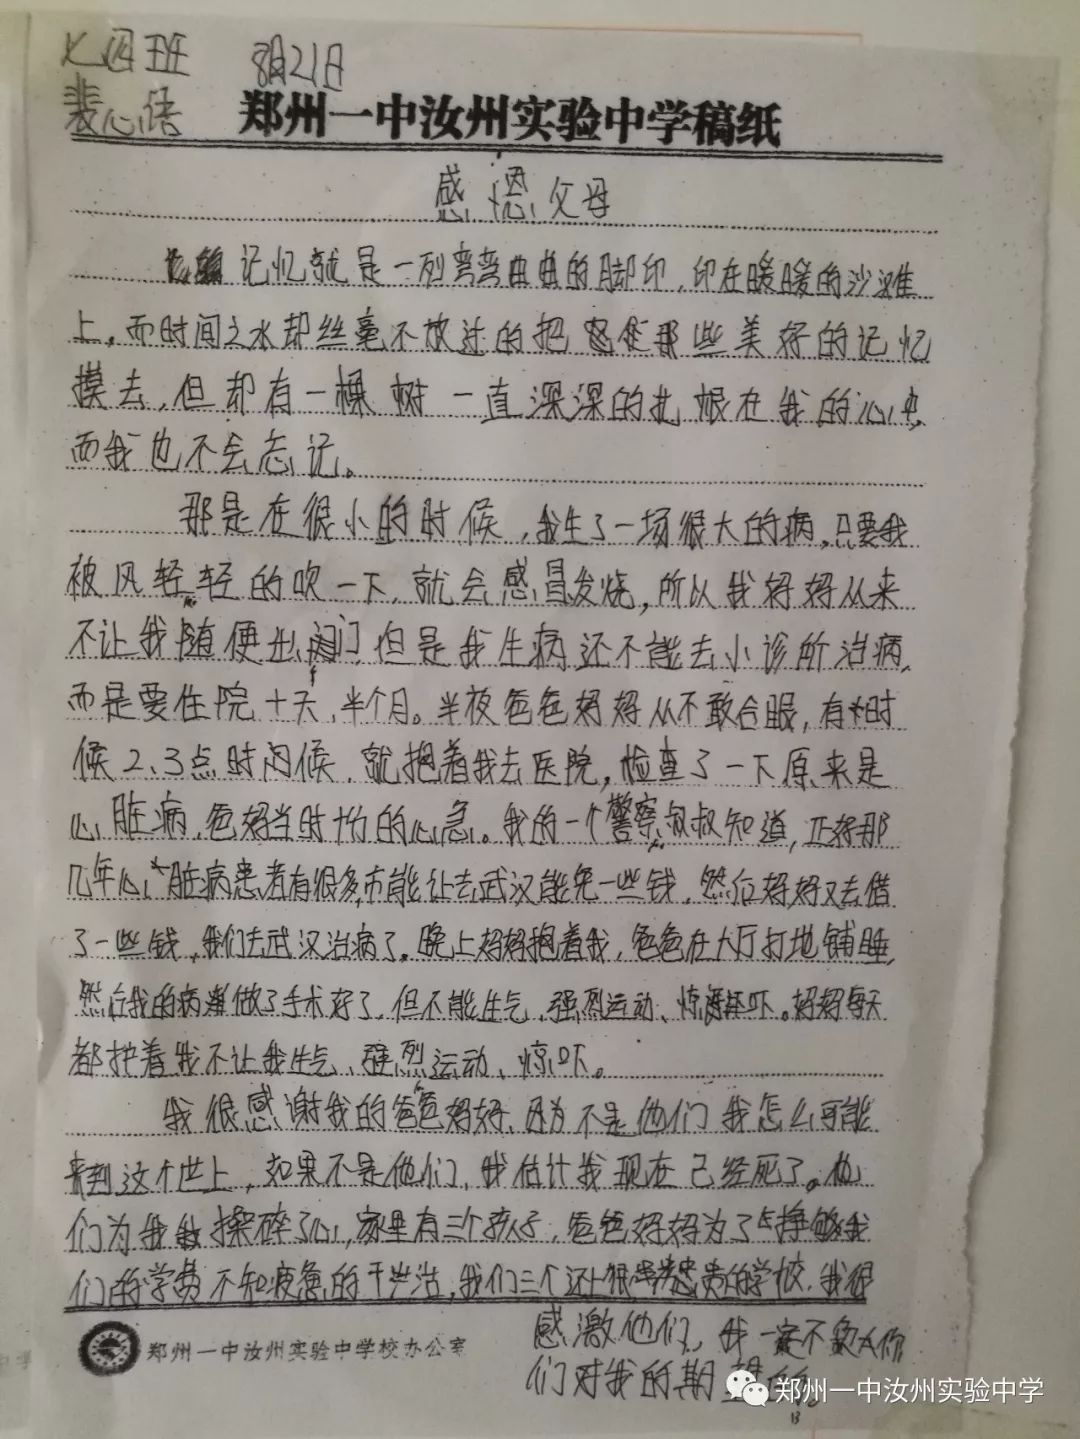 七四班 8月21日
裴心倍
郑州一中汝州实验中学稿纸
感恩父母
记忆就是一列弯弯曲曲的脚印,印在暖暖的沙滩
上,而时间之水却丝毫不放过的把那些美好的记忆
摸去,但却有一棵树一直深深的扎根在我的心中,
而我也不会忘记。
那是在很小的时候,我生了一场很大的病,只要我
被风轻轻的吹一下,就会感冒发烧,所以我妈妈从来
不让我随便出门,但是我生病还不能去小诊所治病,
而是要住院十天、半个月。半夜爸爸妈妈从不敢合眼,有时
候2、3点时候,就抱着我去医院,检查了一下原来是
心脏病,爸妈当时十分的心急。我的一个警察叔叔知道,正好那
几年心脏病患者有很多,市能让去武汉能免一些钱,然后妈妈又去借
了一些钱,我们去武汉治病了。晚上妈妈抱着我,爸爸在大厅打地铺睡,
然后我的病做了手术好了,但不能生气、强烈运动、惊吓。妈妈每天
都护着我不让我生气、强烈运动、惊吓。
我很感谢我的爸爸妈妈,因为不是他们我怎么可能
来到这个世上,如果不是他们,我估计我现在已经死了。他
们为我操碎了心,家里有三个孩子,爸爸妈妈为了挣够我
们的学费不知疲惫的干活,我们三个还上很贵的学校,我很
感激他们,我一定不负你
们对我的期望的。
郑州一中汝州实验中学校办公室
郑州一中汝州实验中学